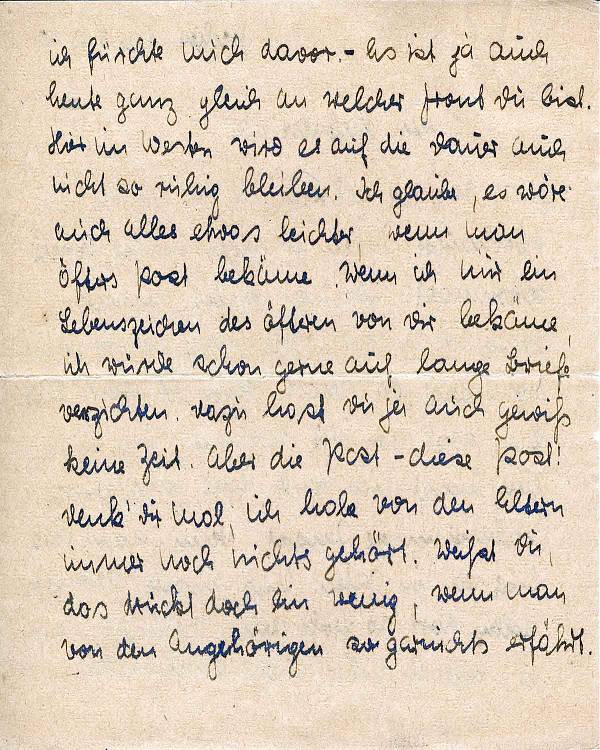 ich fürchte mich davor. - Es ist ja auch
heute ganz gleich an welcher Front du bist.
Hier im Westen wird es auf die Dauer auch
nicht so ruhig bleiben. Ich glaube, es wäre
auch alles etwas leichter, wenn man
öfters Post bekäme. Wenn ich nur ein
Lebenszeichen des öfteren von dir bekäme,
ich würde schon gerne auf lange Briefe
verzichten. Dazu hast du ja auch gewiß
keine Zeit. Aber die Post - diese Post!
Denk' dir mal, ich habe von den Eltern
immer noch nichts gehört. Weißt du,
das drückt doch ein wenig, wenn man
von den Angehörigen so garnichts erfährt.